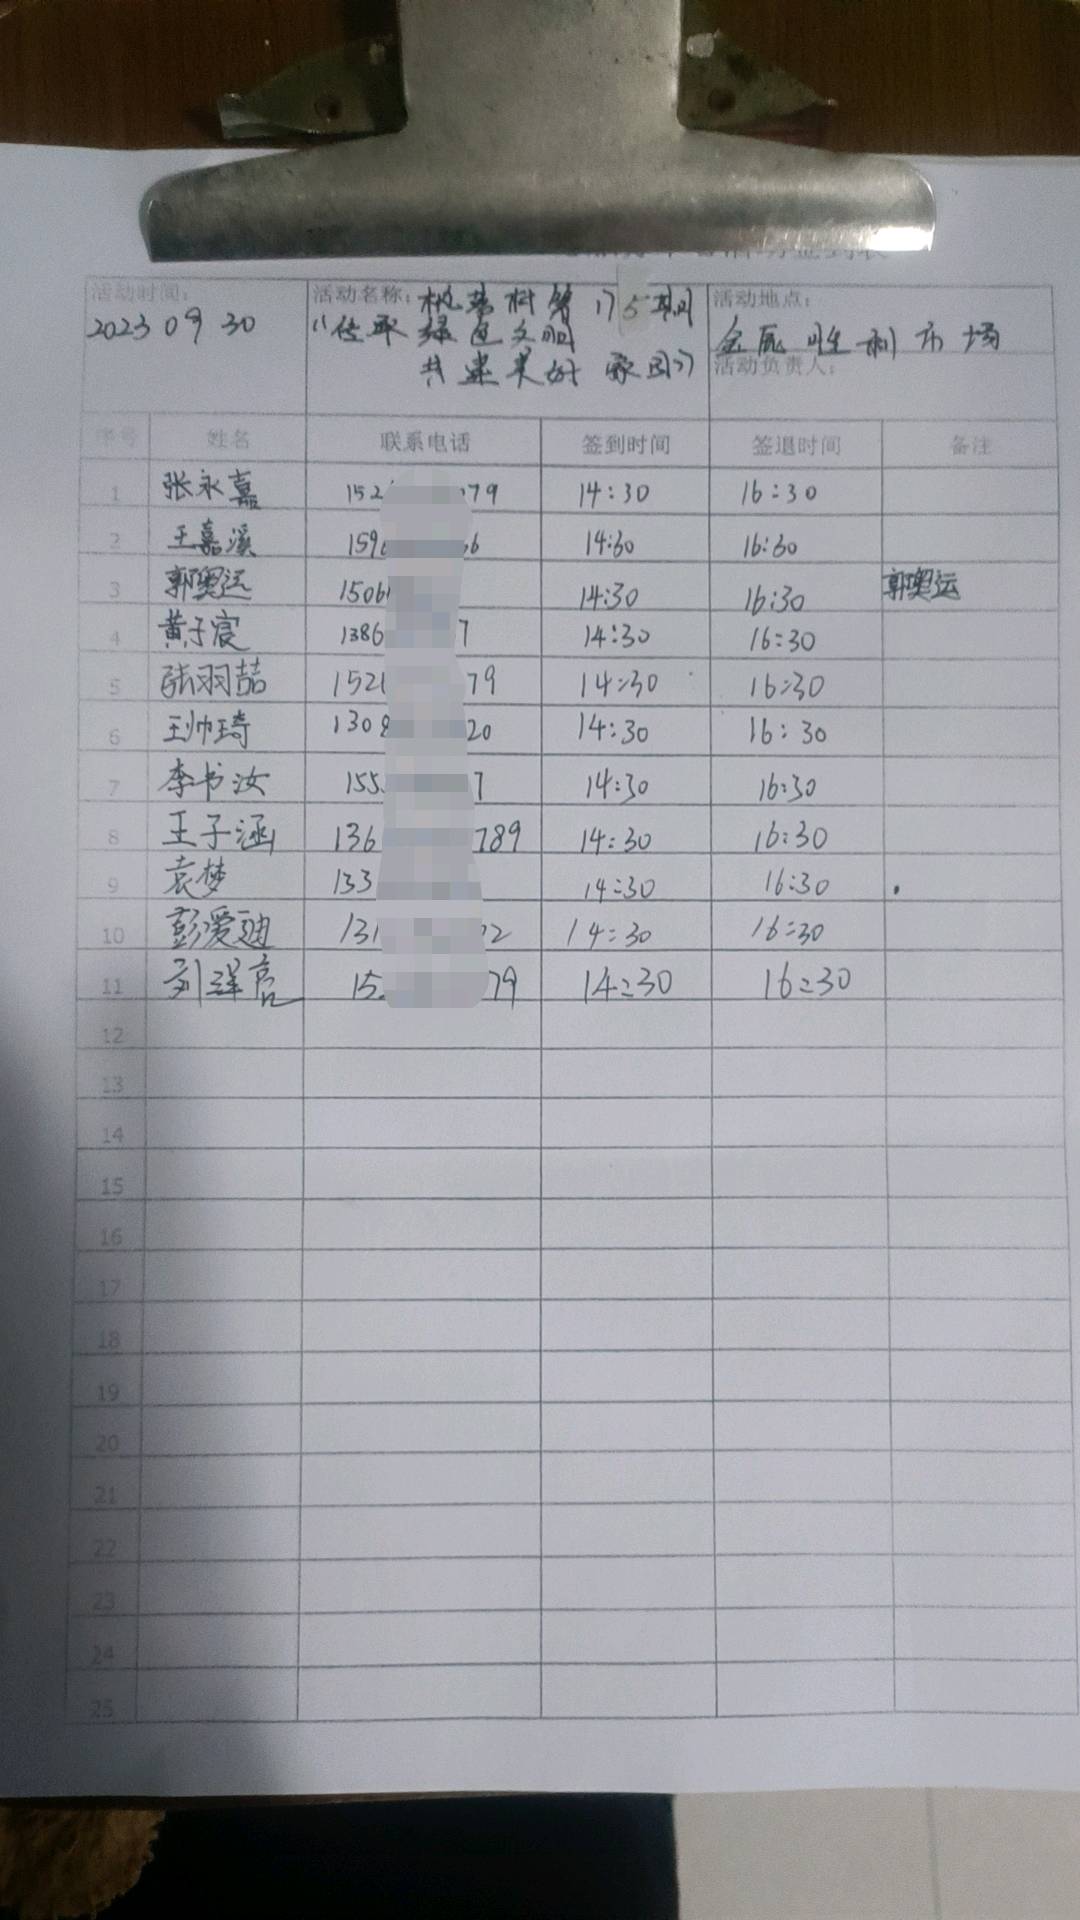 活动时间：
2023 09 30
活动名称：桃花村第175期
“传承绿色文明
共建美好家园”
活动地点：
金辰胜利市场
活动负责人：
序号 姓名 联系电话 签到时间 签退时间 备注
1 张永嘉 152 079 14:30 16:30
2 王嘉溪 159 66 14:30 16:30
3 郭奥运 1506 14:30 16:30 郭奥运
4 黄子宸 1386 7 14:30 16:30
5 张羽喆 1521 79 14:30 16:30
6 王帅琦 1308 20 14:30 16:30
7 李书汝 155 7 14:30 16:30
8 王子涵 136 789 14:30 16:30
9 袁梦 133 14:30 16:30
10 彭爱迪 131 02 14:30 16:30
11 15 79 14:30 16:30
12
13
14
15
16
17
18
19
20
21
22
23
24
25